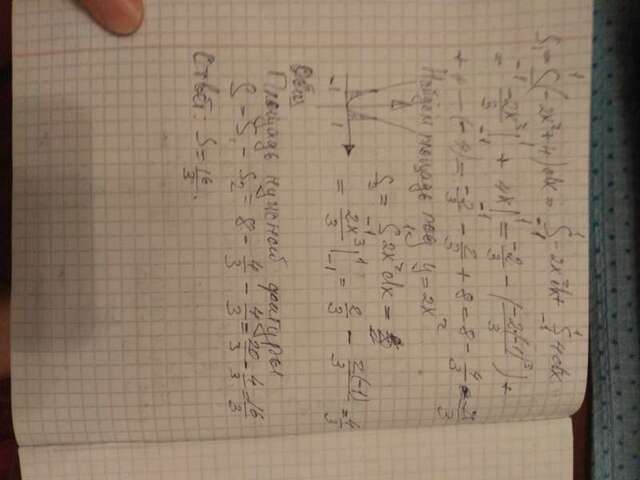 S₁ = ∫₋₁¹(-2x²+4)dx = ∫₋₁¹ -2x²dx + ∫₋₁¹ 4dx
= -2x³/3 |₋₁¹ + 4x |₋₁¹ = -2/3 - (-2(-1)³/3) +
+ 4 - (-4) = -2/3 - 2/3 + 8 = 8 - 4/3
Найдем площадь под y = 2x²
S₂ = ∫₋₁¹ 2x²dx =
-1 1
= 2x³/3 |₋₁¹ = 2/3 - 2(-1)/3 = 4/3
Площадь нужной фигуры
S = S₁ - S₂ = 8 - 4/3 - 4/3 = 20/3 - 4/3 = 16/3
Ответ: S = 16/3.